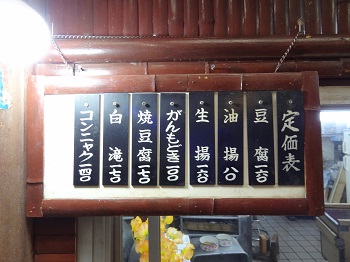 定価表
豆腐一六〇
油揚八〇
生揚一六〇
がんもどき一〇〇
焼豆腐一七〇
白滝一七〇
コンニャク一四〇